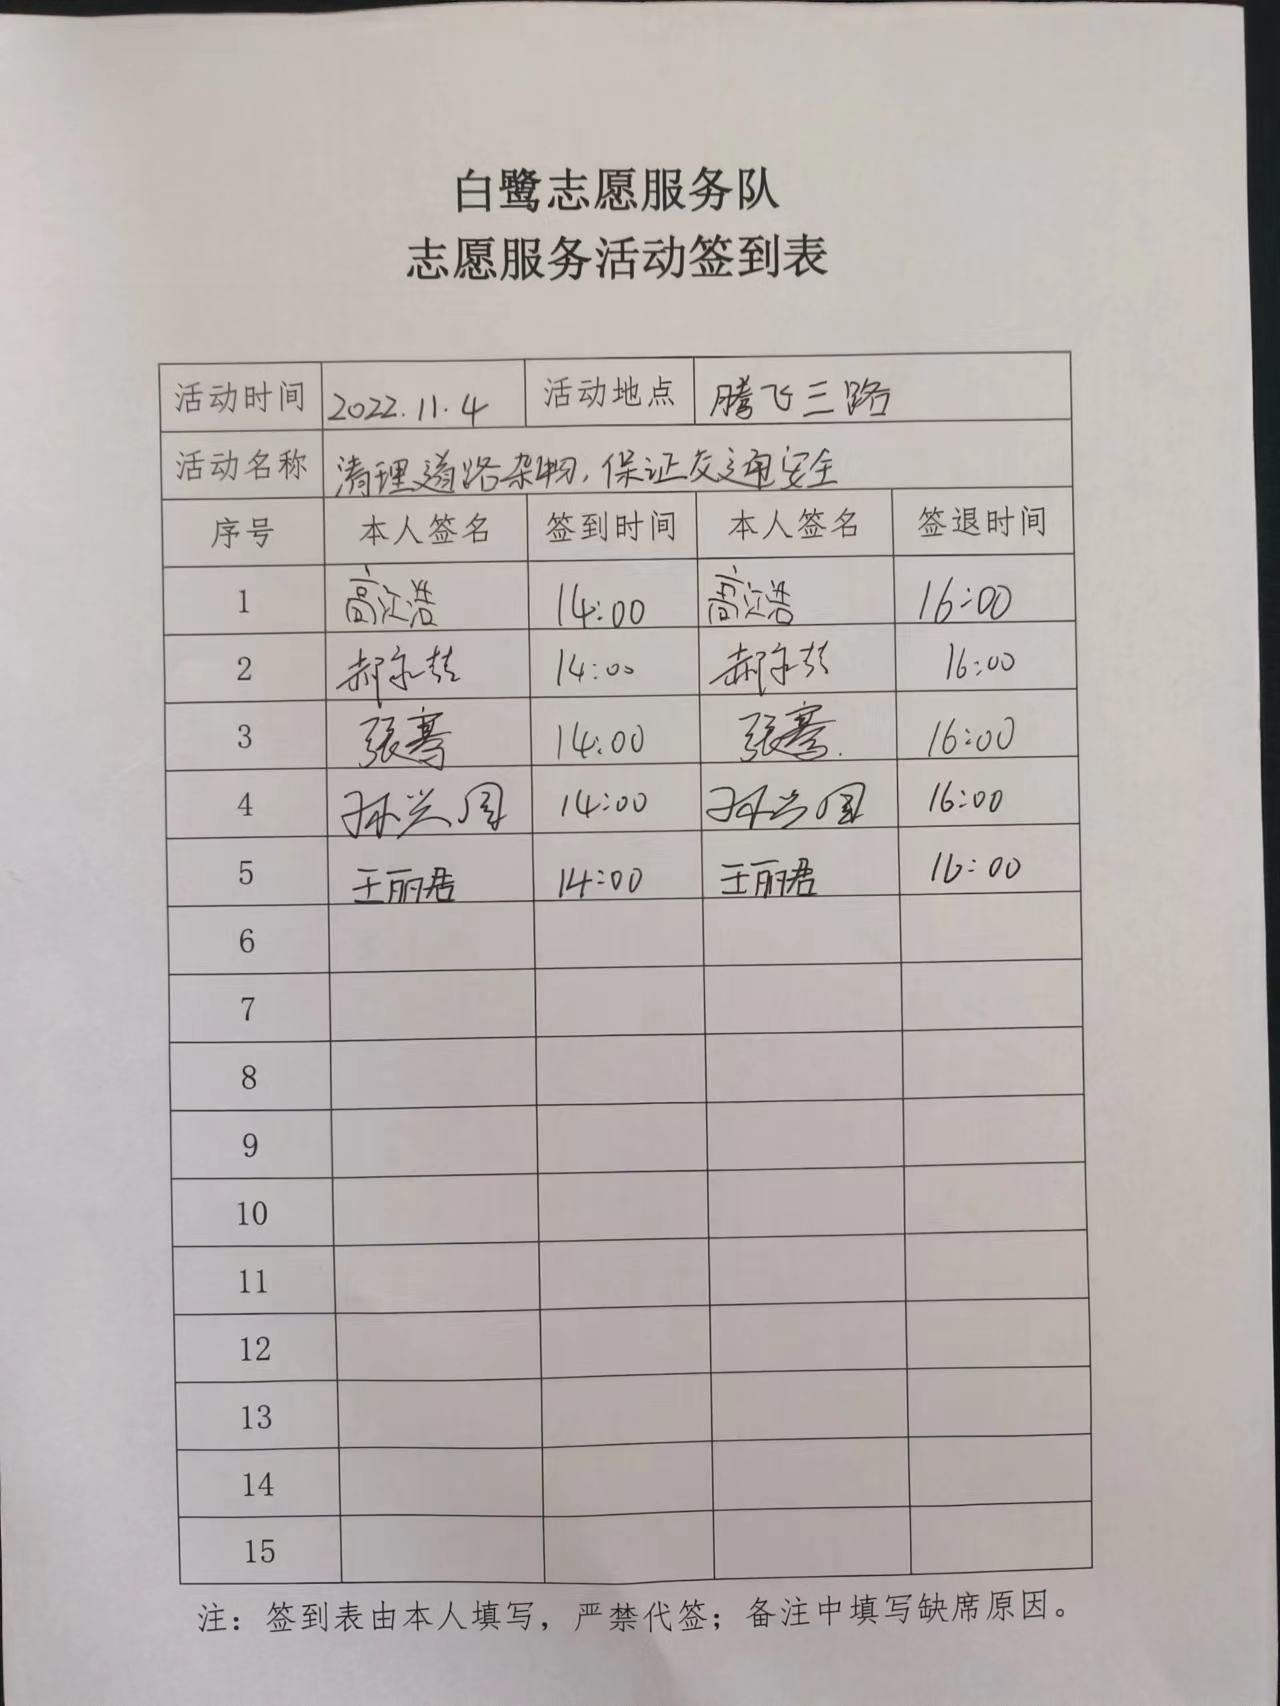 白鹭志愿服务队
志愿服务活动签到表
活动时间 2022.11.4 活动地点 腾飞三路
活动名称 清理道路杂物,保证交通安全
序号 本人签名 签到时间 本人签名 签退时间
1 高江浩 14:00 高江浩 16:00
2 郝 14:00 郝 16:00
3 张骞 14:00 张骞 16:00
4 孙兴国 14:00 孙兴国 16:00
5 王丽君 14:00 王丽君 16:00
6
7
8
9
10
11
12
13
14
15
注：签到表由本人填写，严禁代签；备注中填写缺席原因。